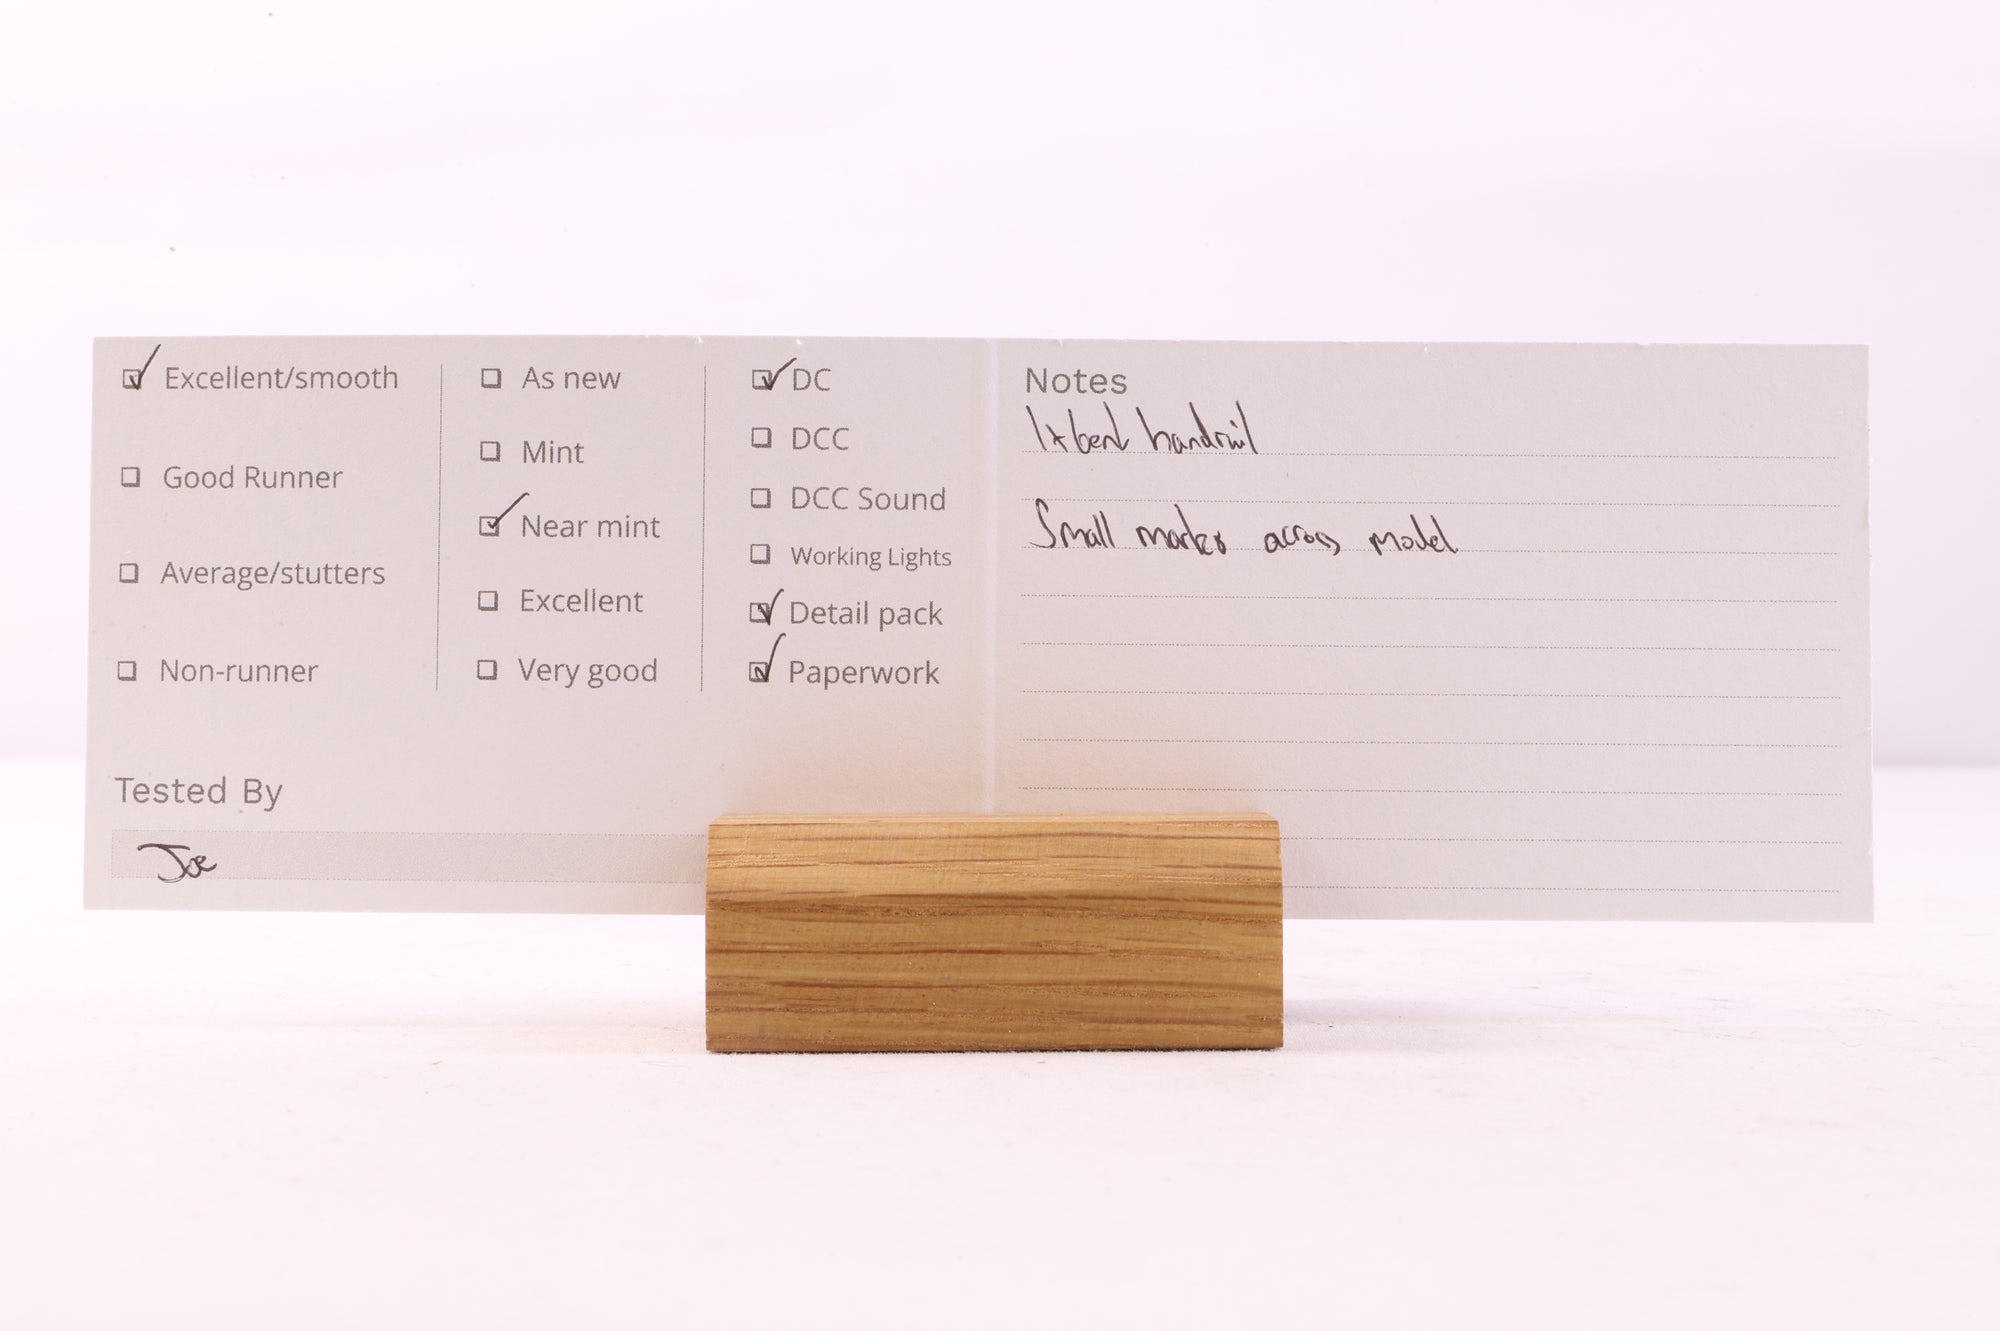 Excellent/smooth
Good Runner
Average/stutters
Non-runner
As new
Mint
Near mint
Excellent
Very good
DC
DCC
DCC Sound
Working Lights
Detail pack
Paperwork
Tested By
Joe
Notes
1x bent handrail
Small marks across model